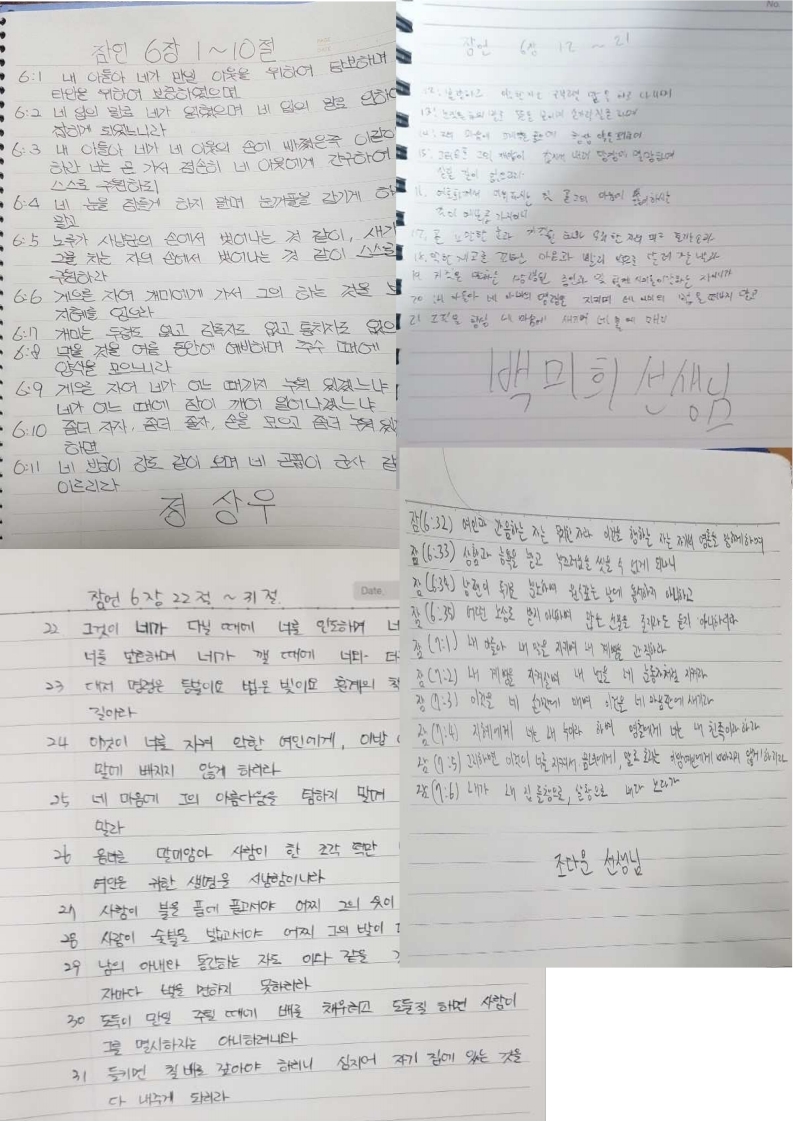 잠언 6장 1~10절
6:1 내 아들아 네가 만일 이웃을 위하여 담보하며
타인을 위하여 보증하였으면
6:2 네 입의 말로 네가 얽혔으며 네 입의 말로 인하여
잡히게 되었느니라
6:3 내 아들아 네가 네 이웃의 손에 빠졌은즉 이같이
하라 너는 곧 가서 겸손히 네 이웃에게 간구하여
스스로 구원하되
6:4 네 눈을 잠들게 하지 말며 눈꺼풀을 감기게 하
말고
6:5 노루가 사냥꾼의 손에서 벗어나는 것 같이, 새가
그물 치는 자의 손에서 벗어나는 것 같이 스스로
구원하라
6:6 게으른 자여 개미에게 가서 그의 하는 것을 보
지혜를 얻으라
6:7 개미는 두령도 없고 감독자도 없고 통치자도 없으
6:8 먹을 것을 여름 동안에 예비하며 추수 때에
양식을 모으느니라
6:9 게으른 자여 네가 어느 때까지 누워 있겠느냐
네가 어느 때에 잠이 깨어 일어나겠느냐
6:10 좀더 자자, 좀더 졸자, 손을 모으고 좀더 누워 있
하면
6:11 네 빈궁이 강도 같이 오며 네 곤핍이 군사 같
이르리라
정상우
No.
잠언 6장 12 ~ 21
16. 여호와께서 미워하시는
17. 곧 교만한 눈과 거짓된 혀와 무죄한 자의 피를 흘리는 손과
18. 악한 계교를 꾀하는 마음과 빨리 악으로 달려가는 발과
20 내 아들아 네 아비의 명령을 지키며 네 어미의 법을 떠나지 말고
21 그것을 항상 네 마음에 새기며 네 목에 매라
백미희 선생님
잠언 6장 22절 ~ 31절.
Date.
22 그것이 네가 다닐 때에 너를 인도하며 네
너를 보호하며 네가 깰 때에 너와 더
23 대저 명령은 등불이요 법은 빛이요 훈계의 책
길이라
24 이것이 너를 지켜 악한 여인에게, 이방
말에 빠지지 않게 하리라
25 네 마음에 그의 아름다움을 탐하지 말며
말라
26 음녀로 말미암아 사람이 한 조각 떡만
여인은 귀한 생명을 사냥함이니라
27 사람이 불을 품에 품고서야 어찌 그의 옷이
28 사람이 숯불을 밟고서야 어찌 그의 발이
29 남의 아내와 통간하는 자도 이와 같을
자마다 벌을 면하지 못하리라
30 도둑이 만일 주릴 때에 배를 채우려고 도둑질 하면 사람이
그를 멸시하지는 아니하려니와
31 들키면 칠 배를 갚아야 하리니 심지어 자기 집에 있는 것을
다 내주게 되리라
잠(6:32) 여인과 간음하는 자는 무지한 자라 이것을 행하는 자는 자기의 영혼을 망하게하며
잠(6:33) 상함과 능욕을 받고 부끄러움을 씻을 수 없게 되나니
잠(6:34) 남편이 투기로 분노하여 원수갚는 날에 용서하지 아니하고
잠(6:35) 어떤 보상도 받지 아니하며 많은 선물을 줄지라도 듣지 아니하리라
잠(7:1) 내 아들아 내 말을 지키며 내 계명을 간직하라
잠(7:2) 내 계명을 지켜 살며 내 법을 네 눈동자처럼 지키라
잠(7:3) 이것을 네 손가락에 매며 이것을 네 마음판에 새기라
잠(7:4) 지혜에게 너는 내 누이라 하며 명철에게 너는 내 친족이라 하라
잠(7:5) 그리하면 이것이 너를 지켜서 음녀에게, 말로 호리는 이방여인에게 빠지지 않게 하리라
잠(7:6) 내가 내 집 들창으로, 살창으로 내다 보다가
조다운 선생님